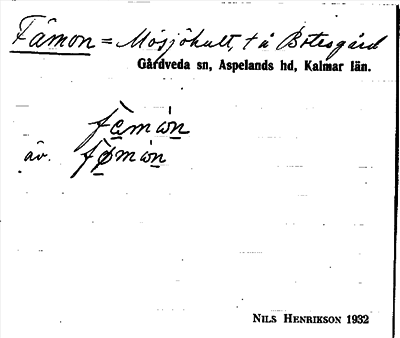 Fåmon = Mösjöhult, t å Botesgård
Gårdveda sn, Aspelands hd, Kalmar län.
fèmón
äv. fø̀món
NILS HENRIKSON 1932